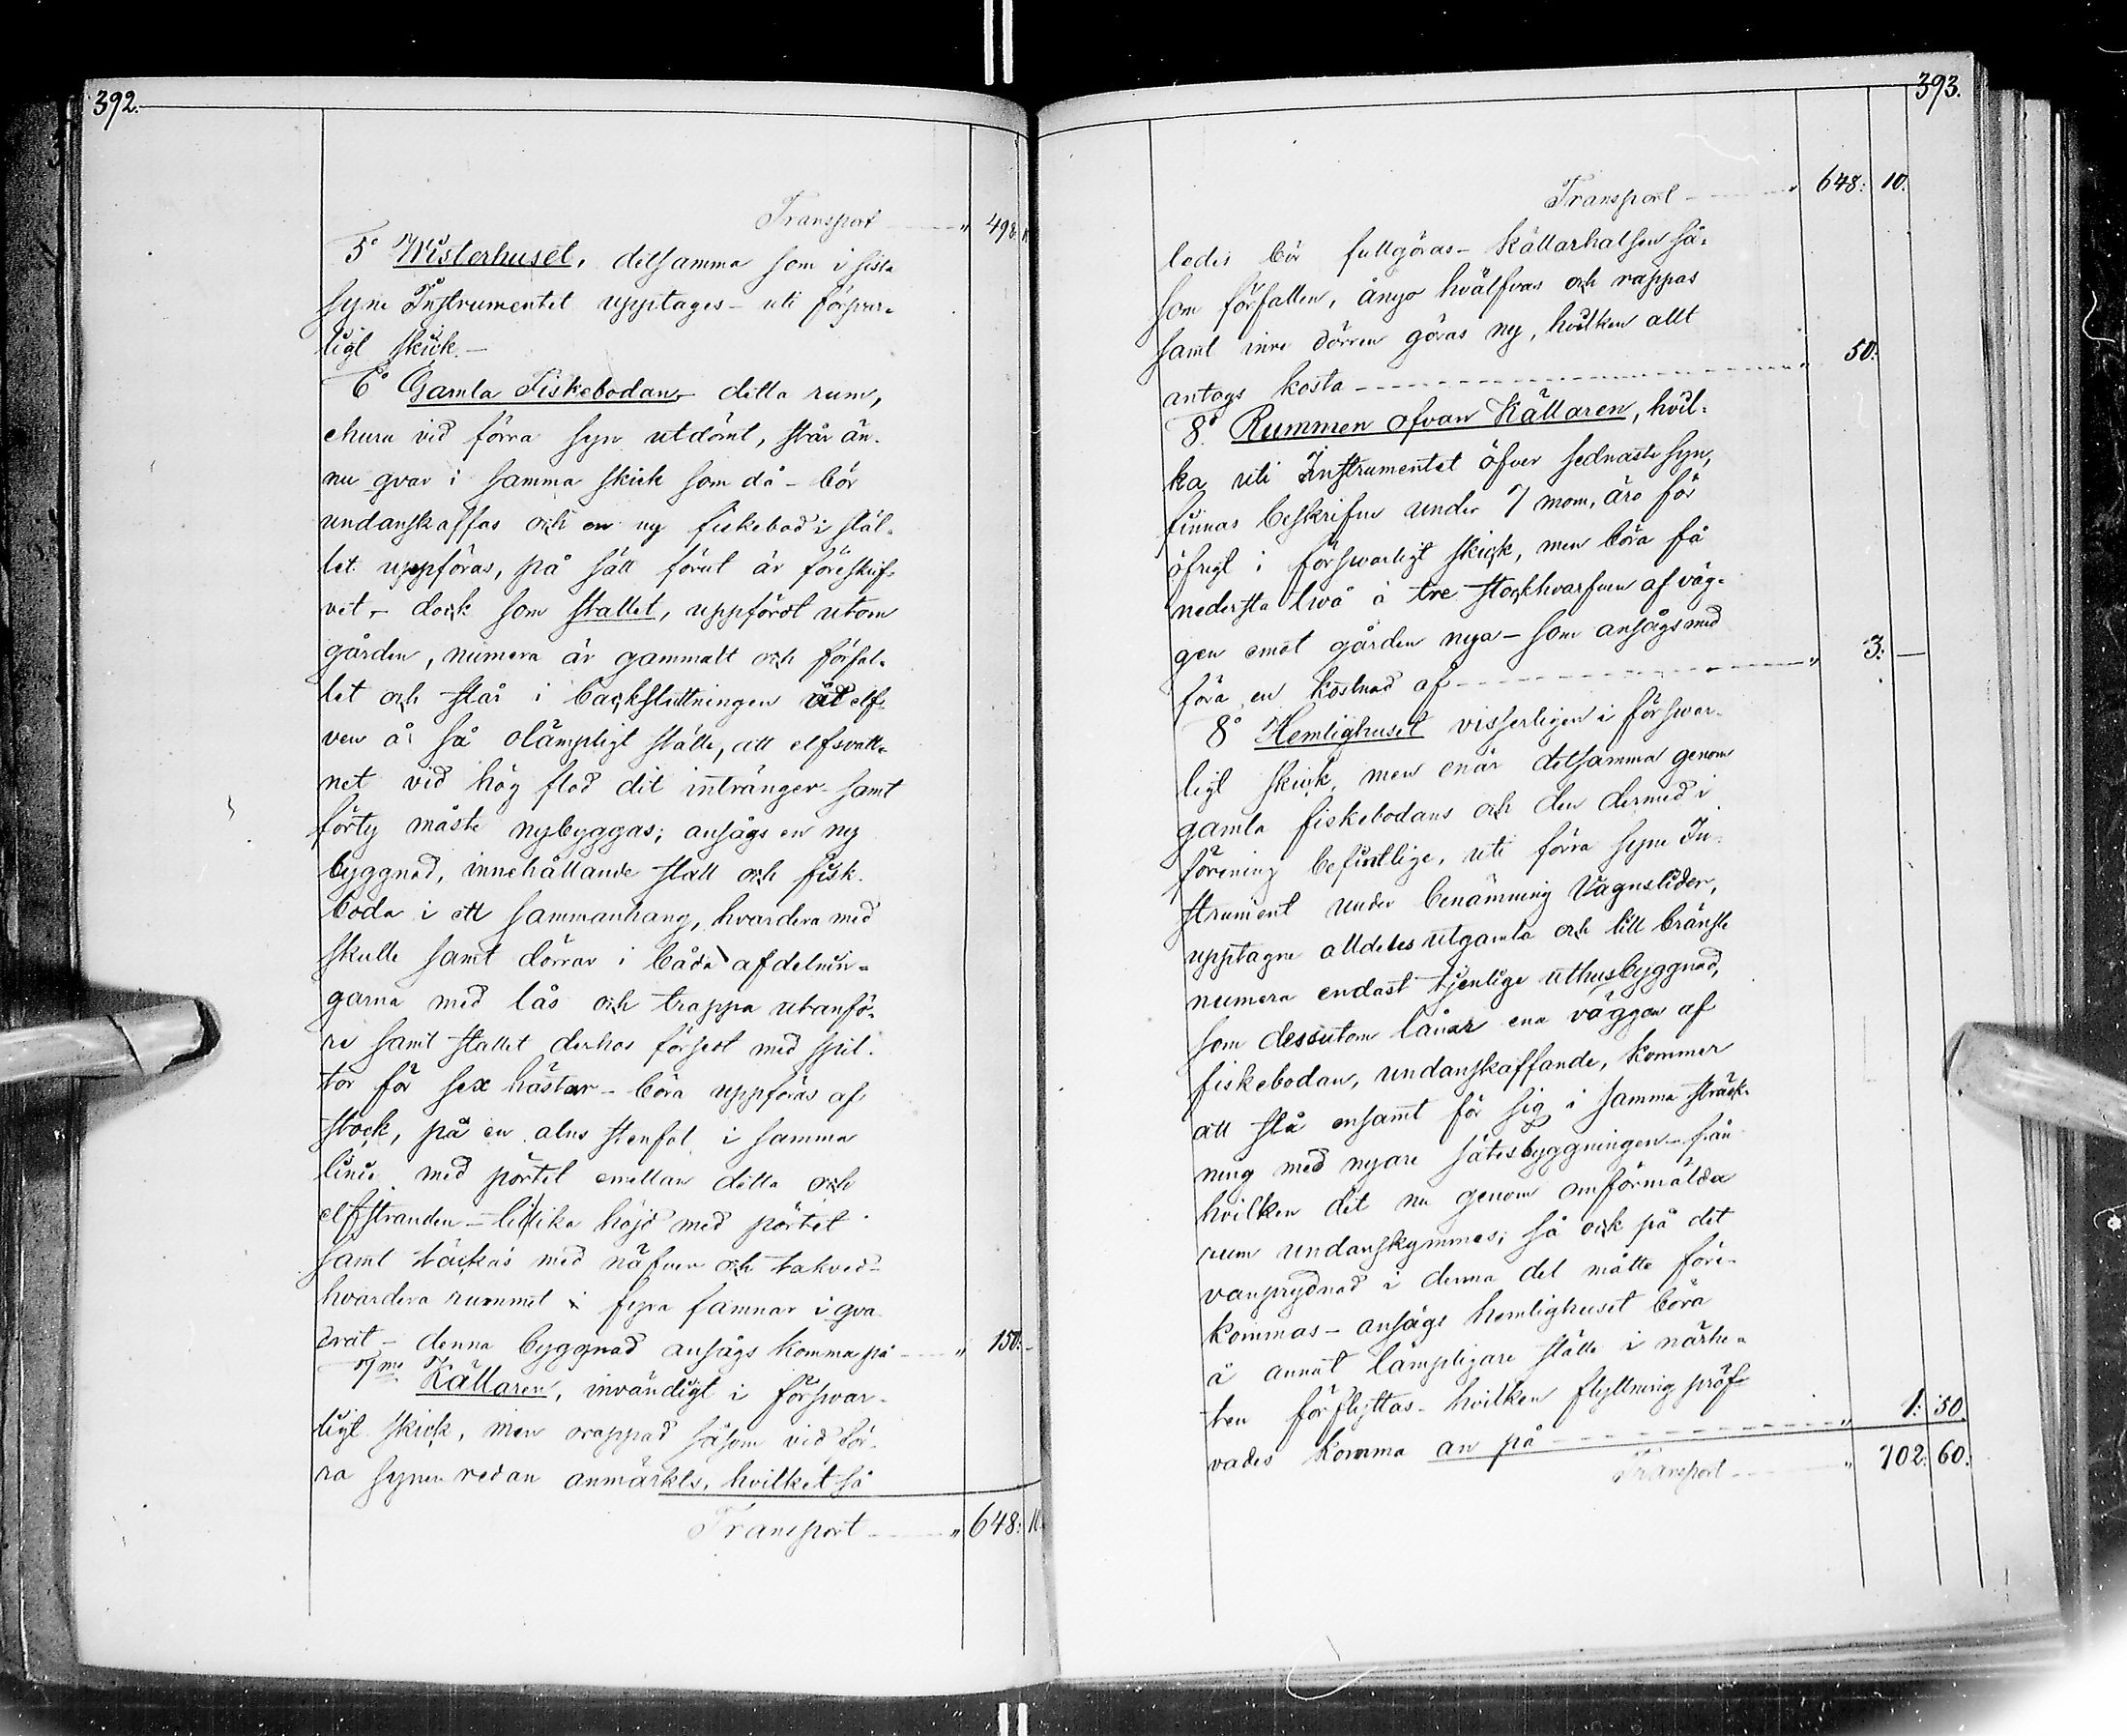 392.
Transport " 498: 1
5º Wisterhuset, detsamma som i sista
syne Instrumentet upptages - uti försvar-
ligt skick. -
6º Gamla Fiskebodan, detta rum,
ehuru vid förra syn utdömt, står än-
nu qvar i samma skick som då - bör
undanskaffas och en ny fiskebod i stäl-
let uppföras, på sätt förut är föreskrif-
vet, - dock som stallet, uppfördt utom
gården, numera är gammalt och förfal-
let och står i backsluttningen åt elf-
ven å så olämpligt ställe, att elfsvatt-
net vid hög flod dit intränger - samt
förty måste nybyggas; ansågs en ny
byggnad, innehållande stall och fisk-
boda i ett sammanhang, hvardera med
skulle samt dörrar i båda afdelnin-
garna med lås och trappa utanfö-
re samt stallet derhos försedt med spil-
tor för sex hästar - böra uppföras af
stock, på en alns stenfot i samma
linie med pörtet emellan detta och
elfstranden - till lika höjd med pörtet
samt täckas med näfver och takved -
hvardera rummet i fyra famnar i qva-
drat - denna byggnad ansågs komma på " 150: -
7mo Källaren, invändigt i försvar-
ligt skick, men orappad såsom vid för-
ra synen redan anmärkts, hvilket så
Transport " 648: 10.
393.
Transport " 648: 10.
ledes bör fullgöras - Källarhalsen så-
som förfallen, ånyo hvälfvas och rappas
samt inre dörren göras ny, hvilken allt
antogs kosta " 50:
8º Rummen ofvan Källaren, hvil-
ka uti Instrumentet öfver sednaste syn,
finnas beskrifne under 7 mom, äro för
öfrigt i försvarligt skick, men böra få
nedersta twå á tre stockhvarfven af väg-
gen emot gården nya - som ansågs med
föra en kostnad af " 3: -
8º Hemlighuset visserligen i försvar-
ligt skick, men enär detsamma genom
gamla fiskebodans och den dermed i
förening befintlige, uti förra syne In-
strument under benämning Vagnslider,
upptagne alldeles utgamla och till bränsle
numera endast tjenlige uthusbyggnad,
som dessutom lånar ena väggen af
fiskebodan, undanskaffande, kommer
att stå ensamt för sig i samma sträck-
ning med nyare sätesbyggningen - från
hvilken det nu genom omförmälda
rum undanskymmes; så ock på det
vanprydnad i denna del måtte före-
kommas - ansågs hemlighuset böra
å annat lämpligare ställe i närhe-
ten förflyttas - hvilken flyttning pröf-
vades komma an på " 1: 50.
Transport " 702: 60.